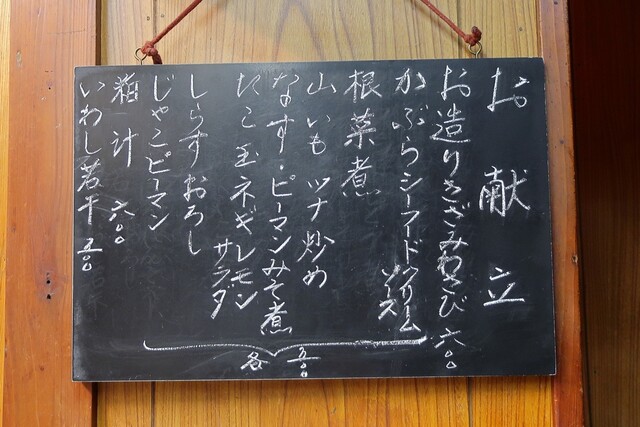 お献立
お造りきざみわさび 六〇〇
かぶらシーフードクリームソース
根菜煮
山いもツナ炒め
なす・ピーマンみそ煮
たこ玉ネギレモンサラダ
しらすおろし
じゃこピーマン
各 五〇〇
粕汁 六〇〇
いわし若干 五〇〇